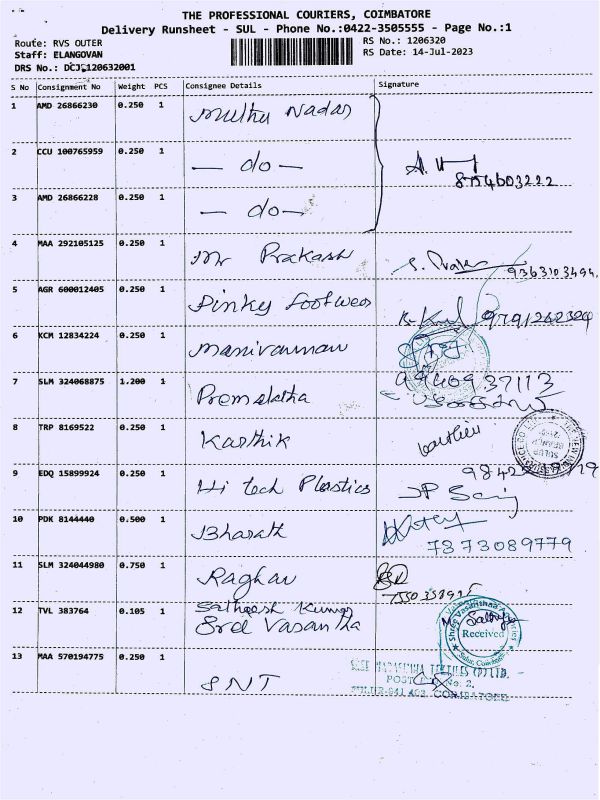 THE PROFESSIONAL COURIERS, COIMBATORE
Delivery Runsheet - SUL - Phone No.:0422-3505555 - Page No.:1
Route: RVS OUTER RS No.: 1206320
Staff: ELANGOVAN RS Date: 14-Jul-2023
DRS No.: DCJC120632001
S No Consignment No Weight PCS Consignee Details Signature
1 AMD 26866230 0.250 1 Muthu Nadar
2 CCU 100765959 0.250 1 — do —
8754603222
3 AMD 26866228 0.250 1 — do —
4 MAA 292105125 0.250 1 Mr Prakash
9363103494
5 AGR 600012405 0.250 1 Pinky footwear
9791242324
6 KCM 12834224 0.250 1 Manivannan
7 SLM 324068875 1.200 1 Premalatha 9940937113
8 TRP 8169522 0.250 1 Karthik
9 EDQ 15899924 0.250 1 Hi tech Plastics
10 PDK 8144440 0.500 1 Bharath
7373089779
11 SLM 324044980 0.750 1 Raghav
12 TVL 383764 0.105 1 Satheesh Kumar
Sree Vasantha
Received
13 MAA 570194775 0.250 1 SNT
SULUR-641 402, COIMBATORE